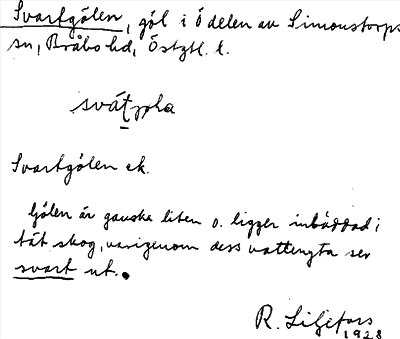 Svartgölen, göl i ö delen av Simonstorps
sn, Bråbo hd, Östgtl. l.
Svartgölen ek.
Gölen är ganska liten o. ligger inbäddad i
tät skog, varigenom dess vattenyta ser
svart ut.
R. Liljefors
1928